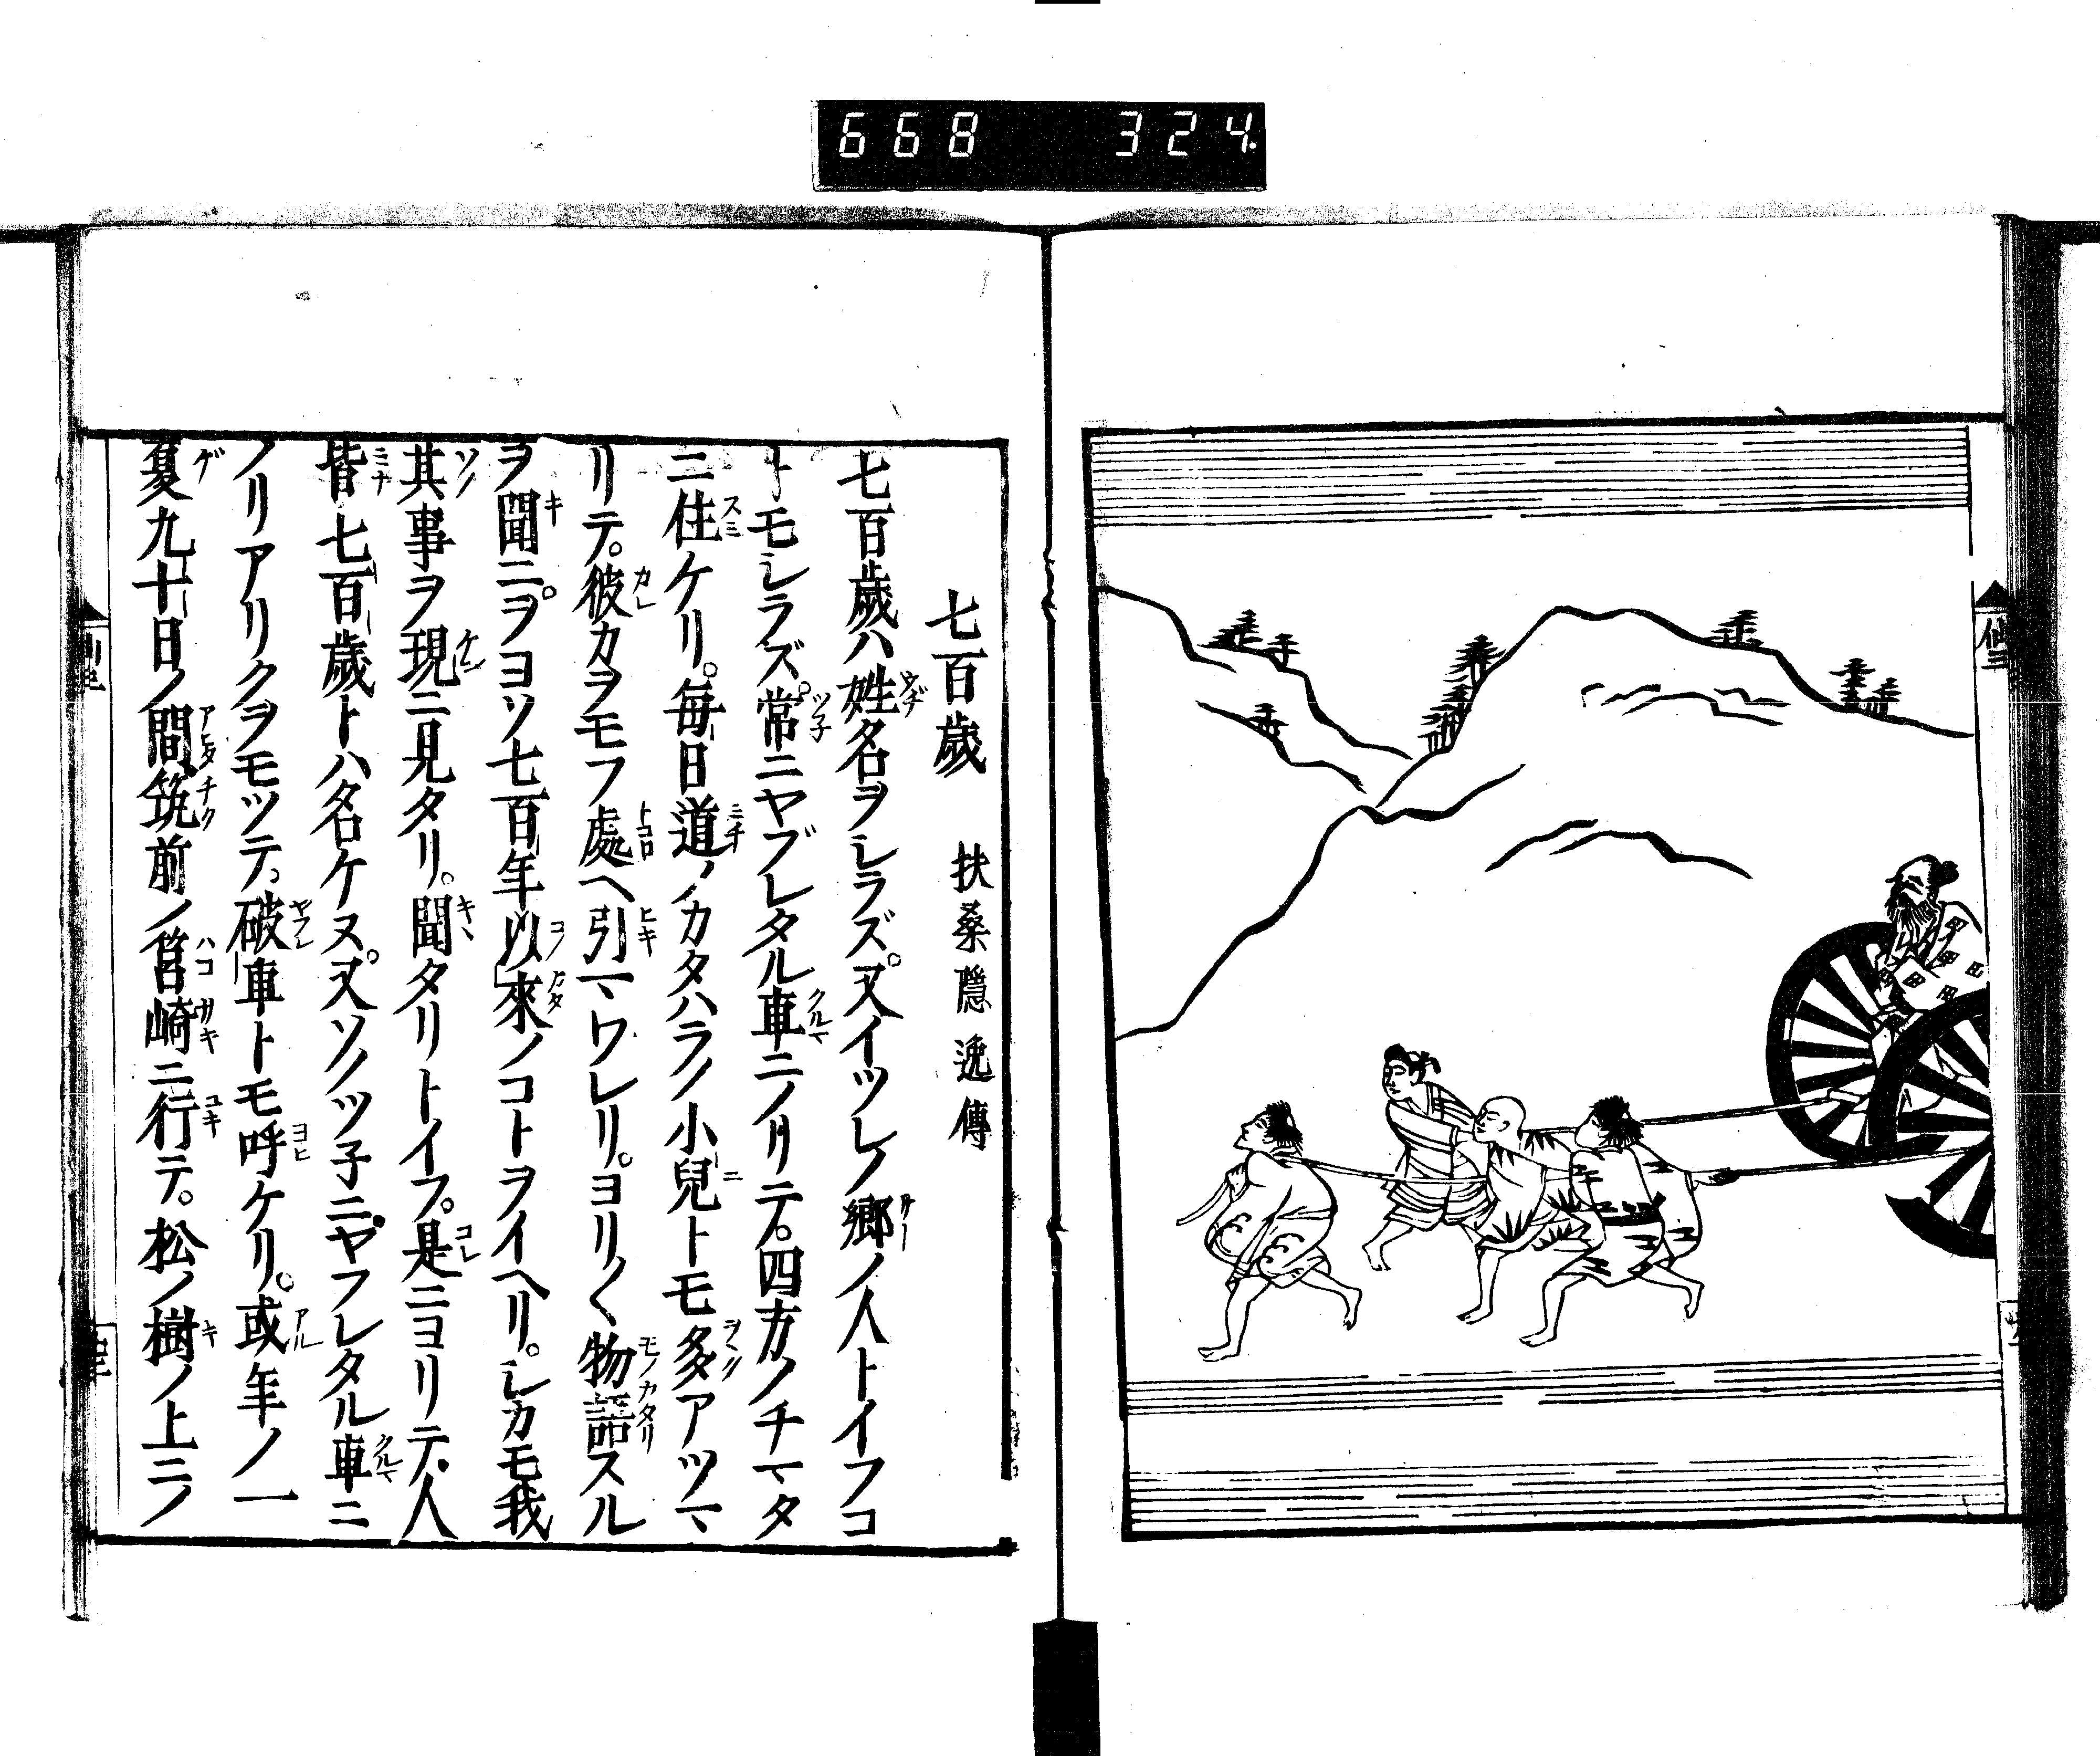 668 324
七百歲 扶桑隱逸傳
七百歲ハ姓名ヲシラズ。又イツレノ郷ノ人トイフコ
トモシラズ。常ニヤブレタル車ニノリテ。四方ノチマタ
ニ住ケリ。毎日道ノカタハラノ小兒トモ多アツマ
リテ。彼カヲモフ處ヘ引マワレリ。ヨリ〱物語スル
ヲ聞ニ。ヲヨソ七百年以來ノコトヲイヘリ。シカモ我
其事ヲ現ニ見タリ。聞タリトイフ。是ニヨリテ人
皆七百歲トハ名ケヌ。又ソノツ子ニヤフレタル車ニ
ノリアリクヲモツテ。破車トモ呼ケリ。或年ノ一
夏九十日ノ間筑前ノ筥崎ニ行テ。松ノ樹ノ上ニノ